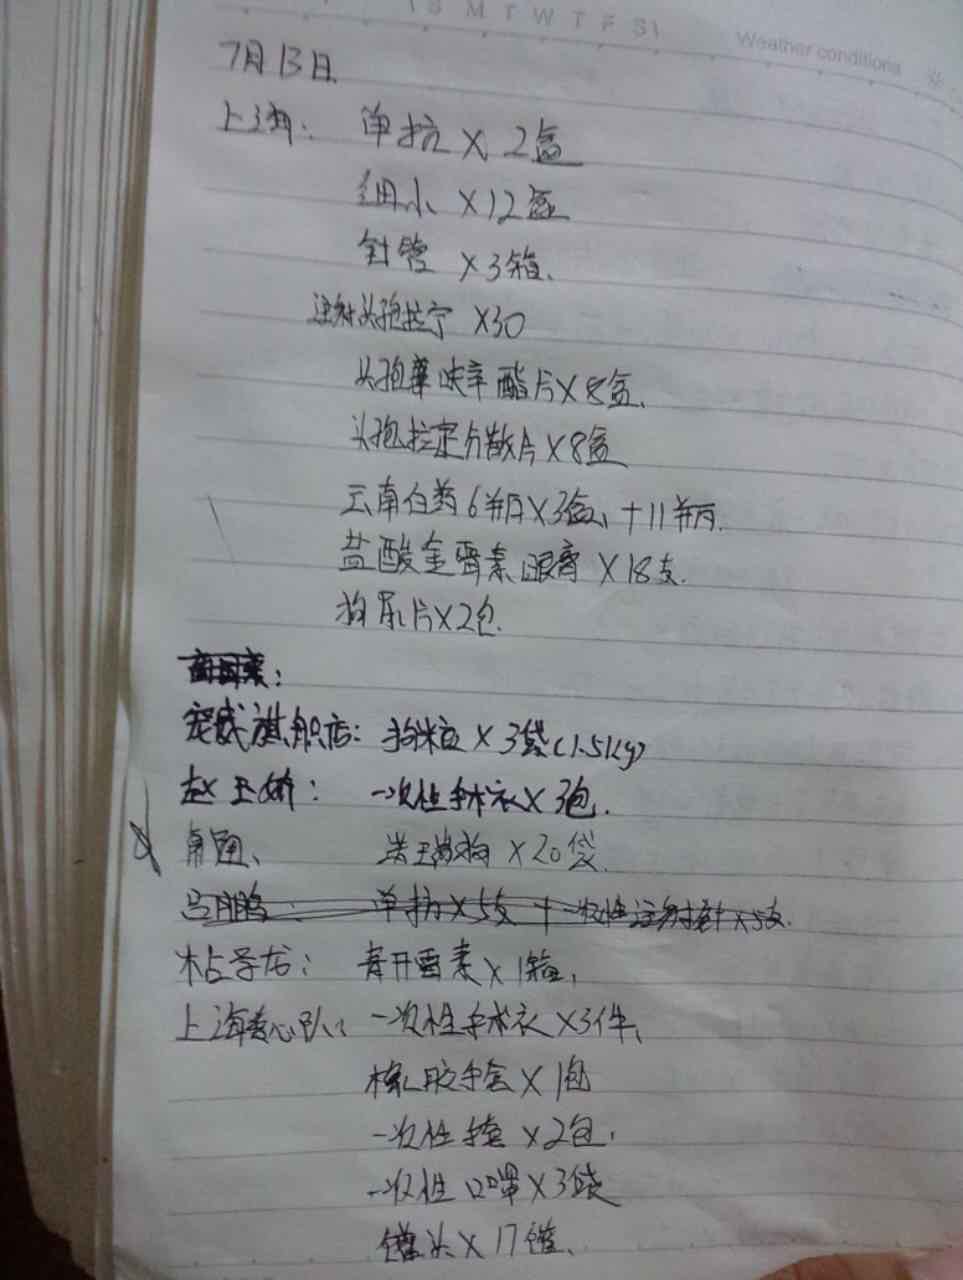 S M T W T F S
Weather conditions
7月13日
上海: 单抗 × 2盒
细小 ×12盒
针管 ×3箱.
注射头孢拉宁 ×30
头孢 呋辛酯片×8盒.
头孢拉定分散片×8盒
云南白药6瓶×3盒, +11瓶.
盐酸金霉素眼膏 ×18支.
狗尿片×2包.
宠威旗舰店: 狗粮 × 3袋(1.5kg)
赵玉娇: 一次性手术衣× 3包.
×20袋.
单抗×5支 + 一次性注射针×5支.
青开霉素×1箱,
上海爱心队: 一次性手术衣×3件,
橡胶手套×1包
一次性 ×2包,
一次性口罩×3袋
罐头×17罐.